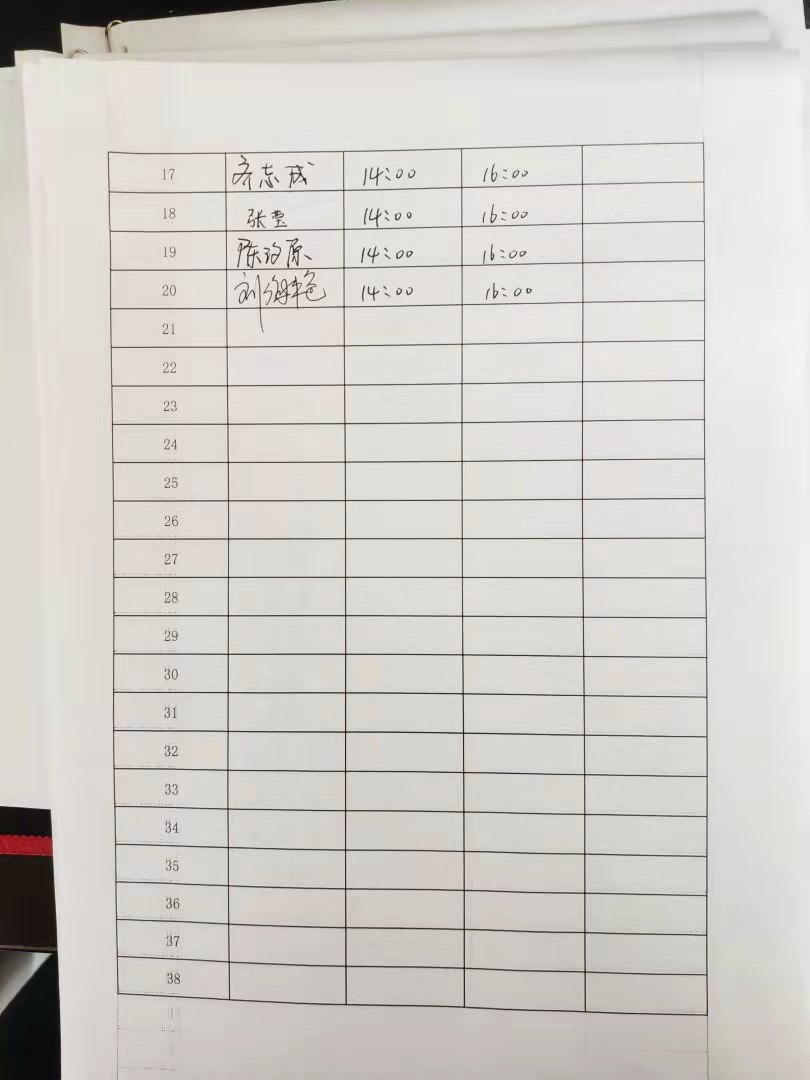 17 齐志成 14:00 16:00
18 张莹 14:00 16:00
19 陈 原 14:00 16:00
20 刘 艳 14:00 16:00
21
22
23
24
25
26
27
28
29
30
31
32
33
34
35
36
37
38